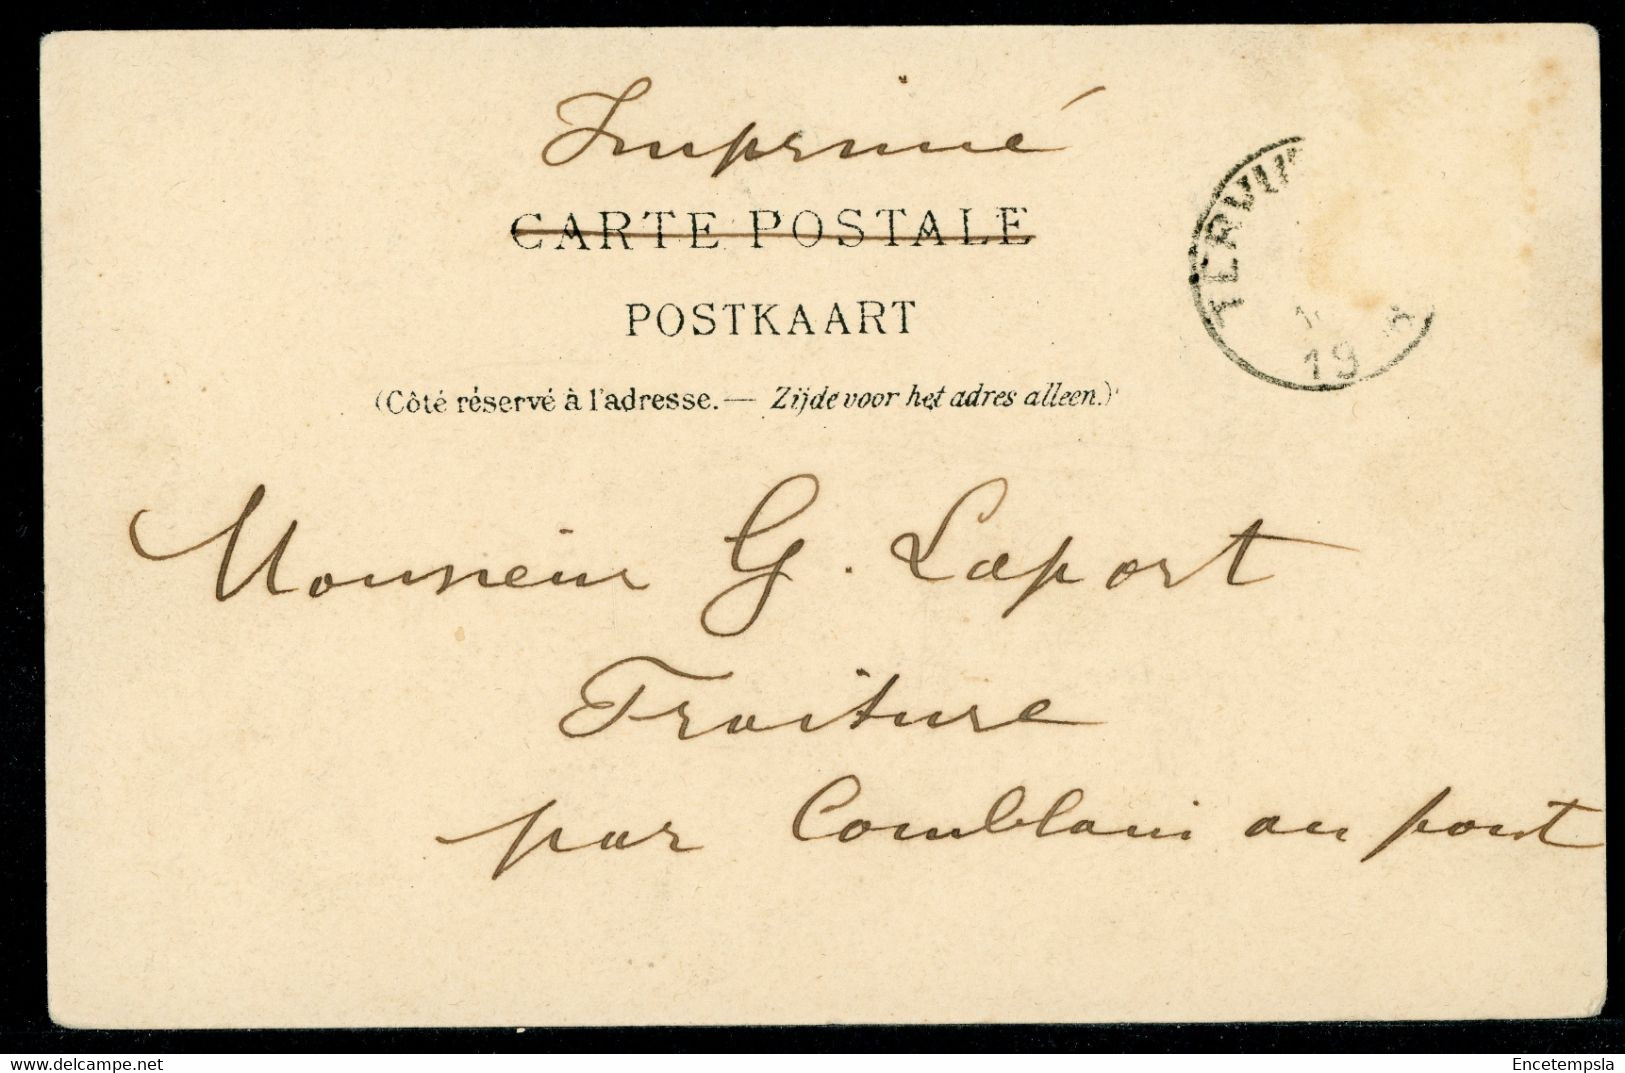 Imprimé
CARTE POSTALE
POSTKAART
(Côté réservé à l'adresse. — Zijde voor het adres alleen.)
TERVU
19
Monsieur G. Laport
Froiture
par Comblain au pont
Encetempsla